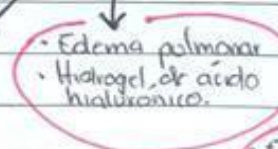 · Edema pulmonar
· Hidrogel de ácido
hialuronico.